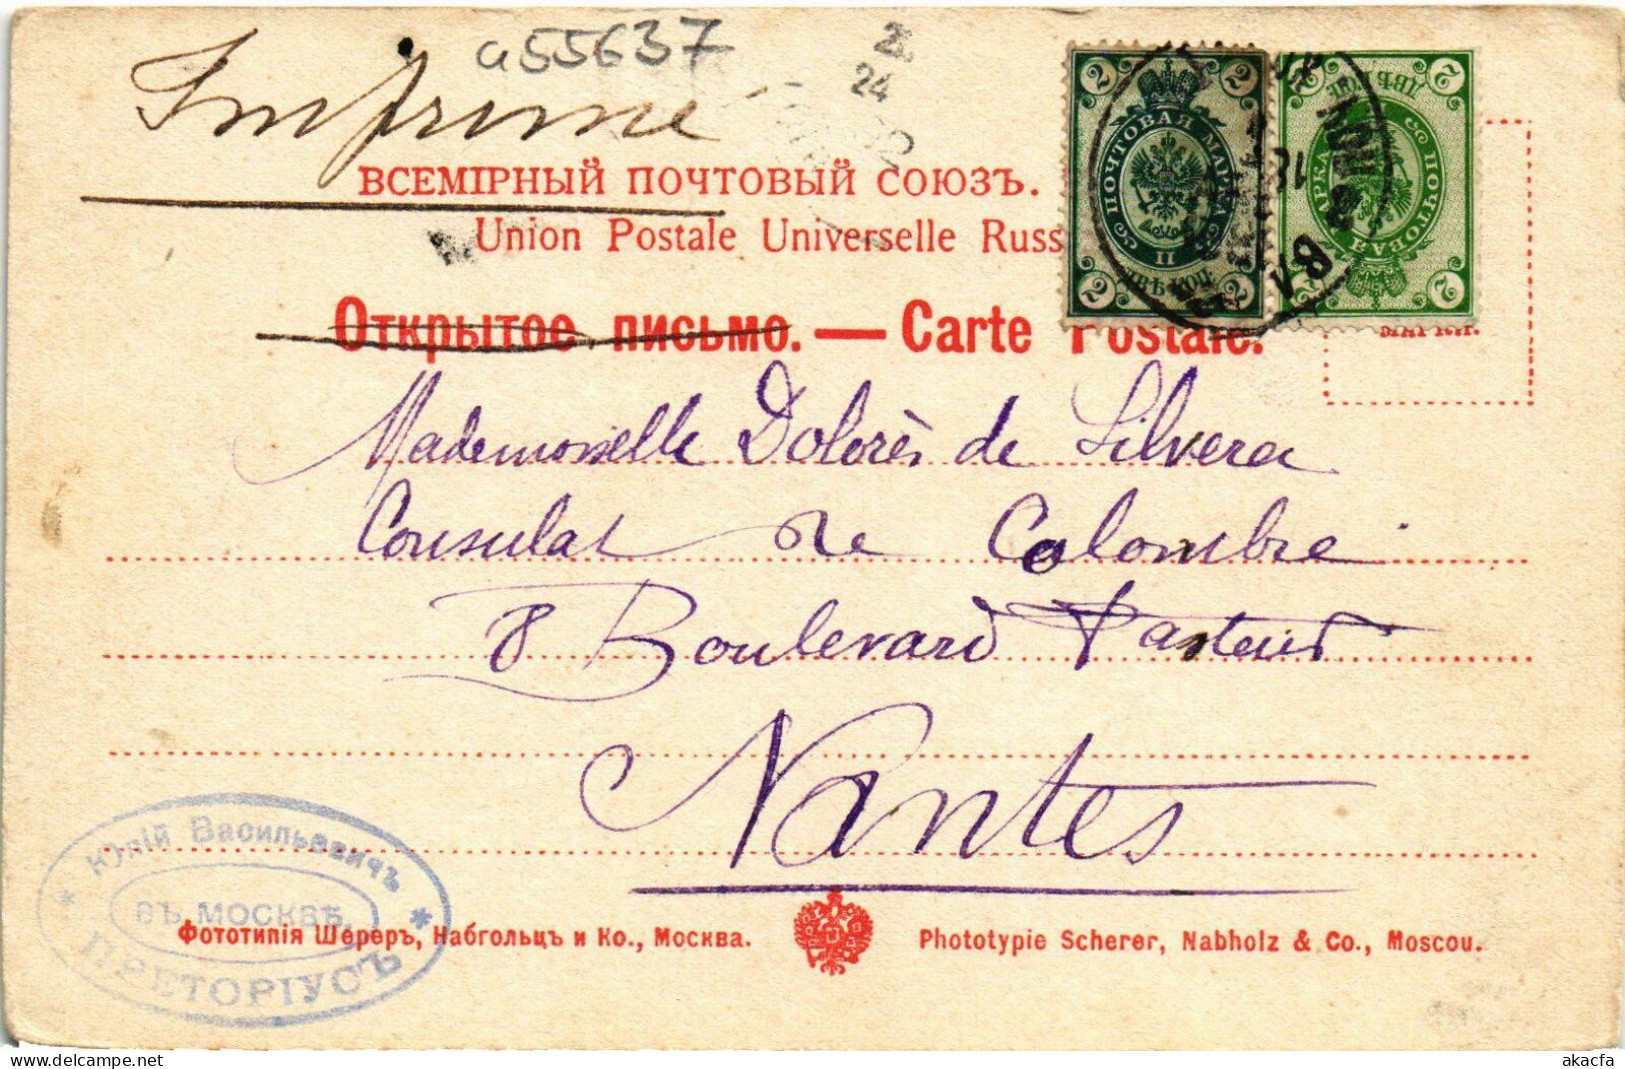 a55637
Imprimé
24
ВСЕМІРНЫЙ ПОЧТОВЫЙ СОЮЗЪ.
Union Postale Universelle Russ
Открытое письмо. — Carte Postale.
2 2 ПОЧТОВАЯ МАРКА II ДВѢ КОП. 2 2
2 2 ПОЧТОВАЯ МАРКА ДВѢ КОП 2 2
Mademoiselle Dolorès de Silvera
Consulat de Colombie
8 Boulevard Pasteur
Nantes
Юлій Васильевичъ
ВЪ МОСКВѢ.
ПРЕТОРІУСЪ
Фототипія Шереръ, Набгольцъ и Ко., Москва.
Phototypie Scherer, Nabholz & Co., Moscou.
akacfa-delcampe.net
akacfa